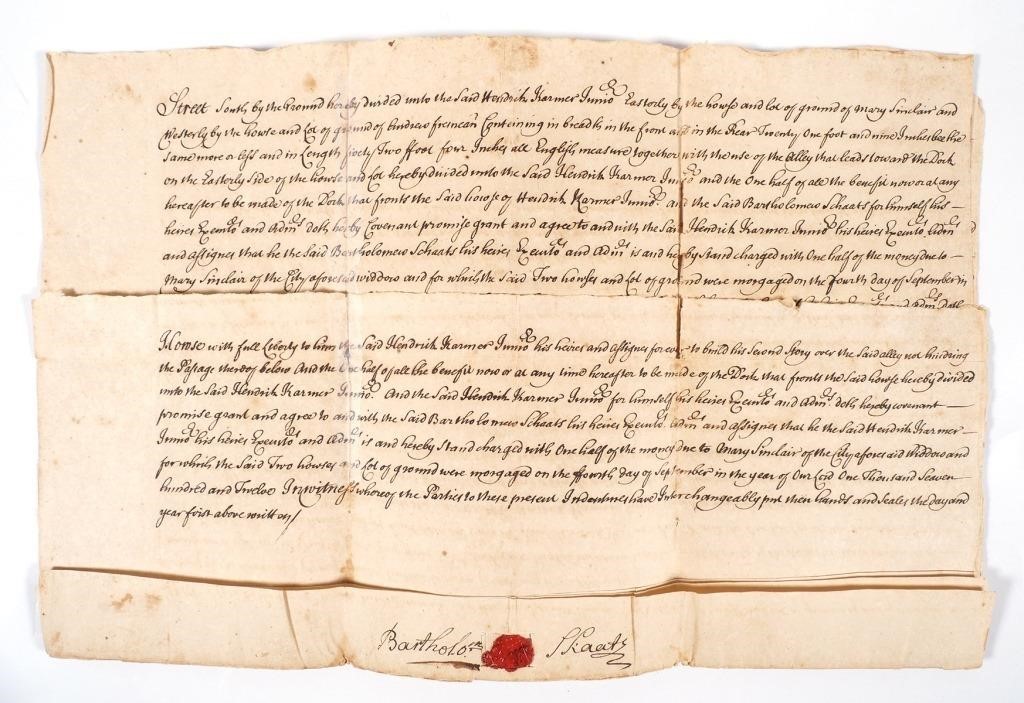 Street South by the Ground hereby divided unto the Said Hendrik Karmer Junior Easterly by the howse and Lot of ground of Mary Sinclair and
Westerly by the howse and Lot of ground of Andrew fresnean Conteining in breadth in the front and in the Rear Twenty One foot and nine Inches bee the
same more or less and in Length fivety Two ffoot four Inches all English measure together with the use of the Alley that leads toward the Dock
on the Easterly Side of the howse and Lot hereby divided unto the Said Hendrik Karmer Junior and the One half of all the benefit now or at any
hereafter to be made of the Dock that fronts the Said howse of Hendrik Karmer Junior. and the Said Bartholomew Schaats for himself his
heires Executo.rs and Adm.rs doth hereby Covenant promise grant and agree to and with the Said Hendrik Karmer Junior his heires Executo.rs Adm.rs
and assignes that he the Said Bartholomew Schaats his heires Executo.rs and Adm.rs is and hereby Stand charged with One half of the money due to
Mary Sinclair of the City aforesaid widdow and for which the Said Two howses and Lot of ground were morgaged on the fourth day of September in
Howse with full Liberty to him the Said Hendrik Karmer Junior his heires and assignes for ever to build his Second Story over the Said alley not hindring
the Passage thereof below And the One half of all the benefit now or at any time hereafter to be made of the Dock that fronts the Said howse hereby divided
unto the Said Hendrik Karmer Junior. And the Said Hendrik Karmer Junior for himself his heires Executo.rs and Adm.rs doth hereby covenant
promise grant and agree to and with the Said Bartholomew Schaats his heires Executo.rs Adm.rs and assignes that he the Said Hendrik Karmer
Junior his heires Executo.rs and Adm.rs is and hereby Stand charged with One half of the money due to Mary Sinclair of the City aforesaid Widdow and
for which the Said Two howses and Lot of ground were morgaged on the ffourth day of September in the year of our Lord One Thousand Seaven
hundred and Twelve In witness whereof the Parties to these present Indentures have Interchangeably put their hands and Seales the day and
year first above written/
Bartholo.m Skaats